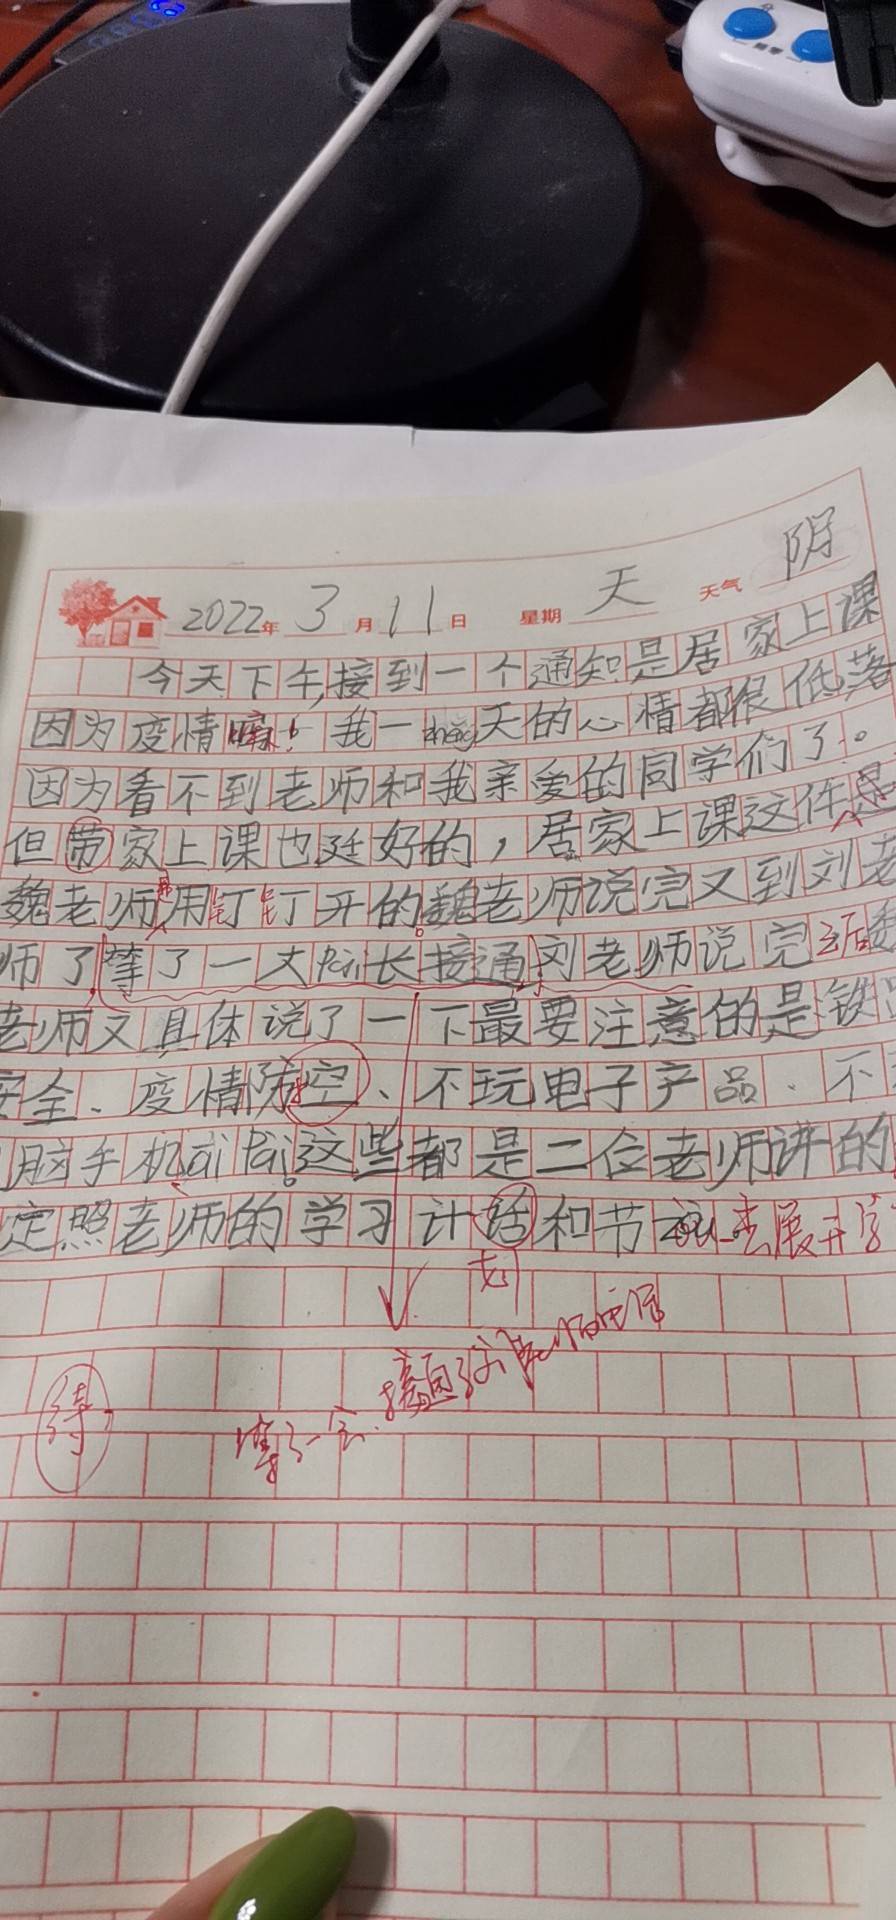 2022年3月11日 星期天 天气阴
今天下午,接到一个通知是居家上课
因为疫情嘛!我一zheng天的心情都很低落
因为看不到老师和我亲爱的同学们了。
但带家上课也廷好的,居家上课这件
魏老师用钉钉开的。魏老师说完又到刘老
师了等了一大Pai长接通刘老师说完后魏
老师又具体说了一下最要注意的是铁
安全、疫情防空、不玩电子产品、不
脑手机ai Pai。这些都是二位老师讲的
定照老师的学习计话和节zou去展开学
划
等了一会,接通了